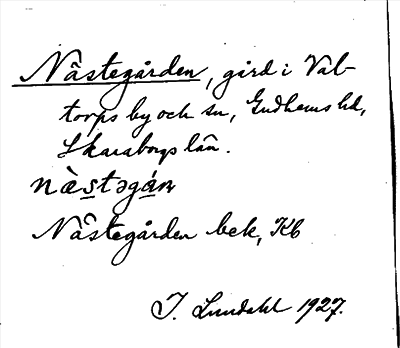 Nästegården, gård i Val-
torps by och sn, Gudhems hd,
Skaraborgs län.
nàstəgán
Nästegården bek, Kb
I. Lundahl 1927.